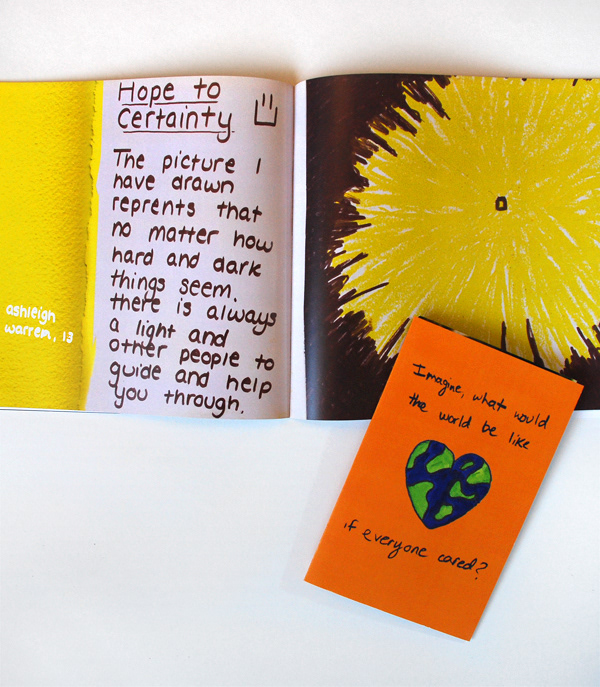 Hope to
Certainty.
The picture I
have drawn
reprents that
no matter how
hard and dark
things seem.
there is always
a light and
other people to
guide and help
you through.
ashleigh
warren, 13
Imagine, what would
the world be like
if everyone cared?